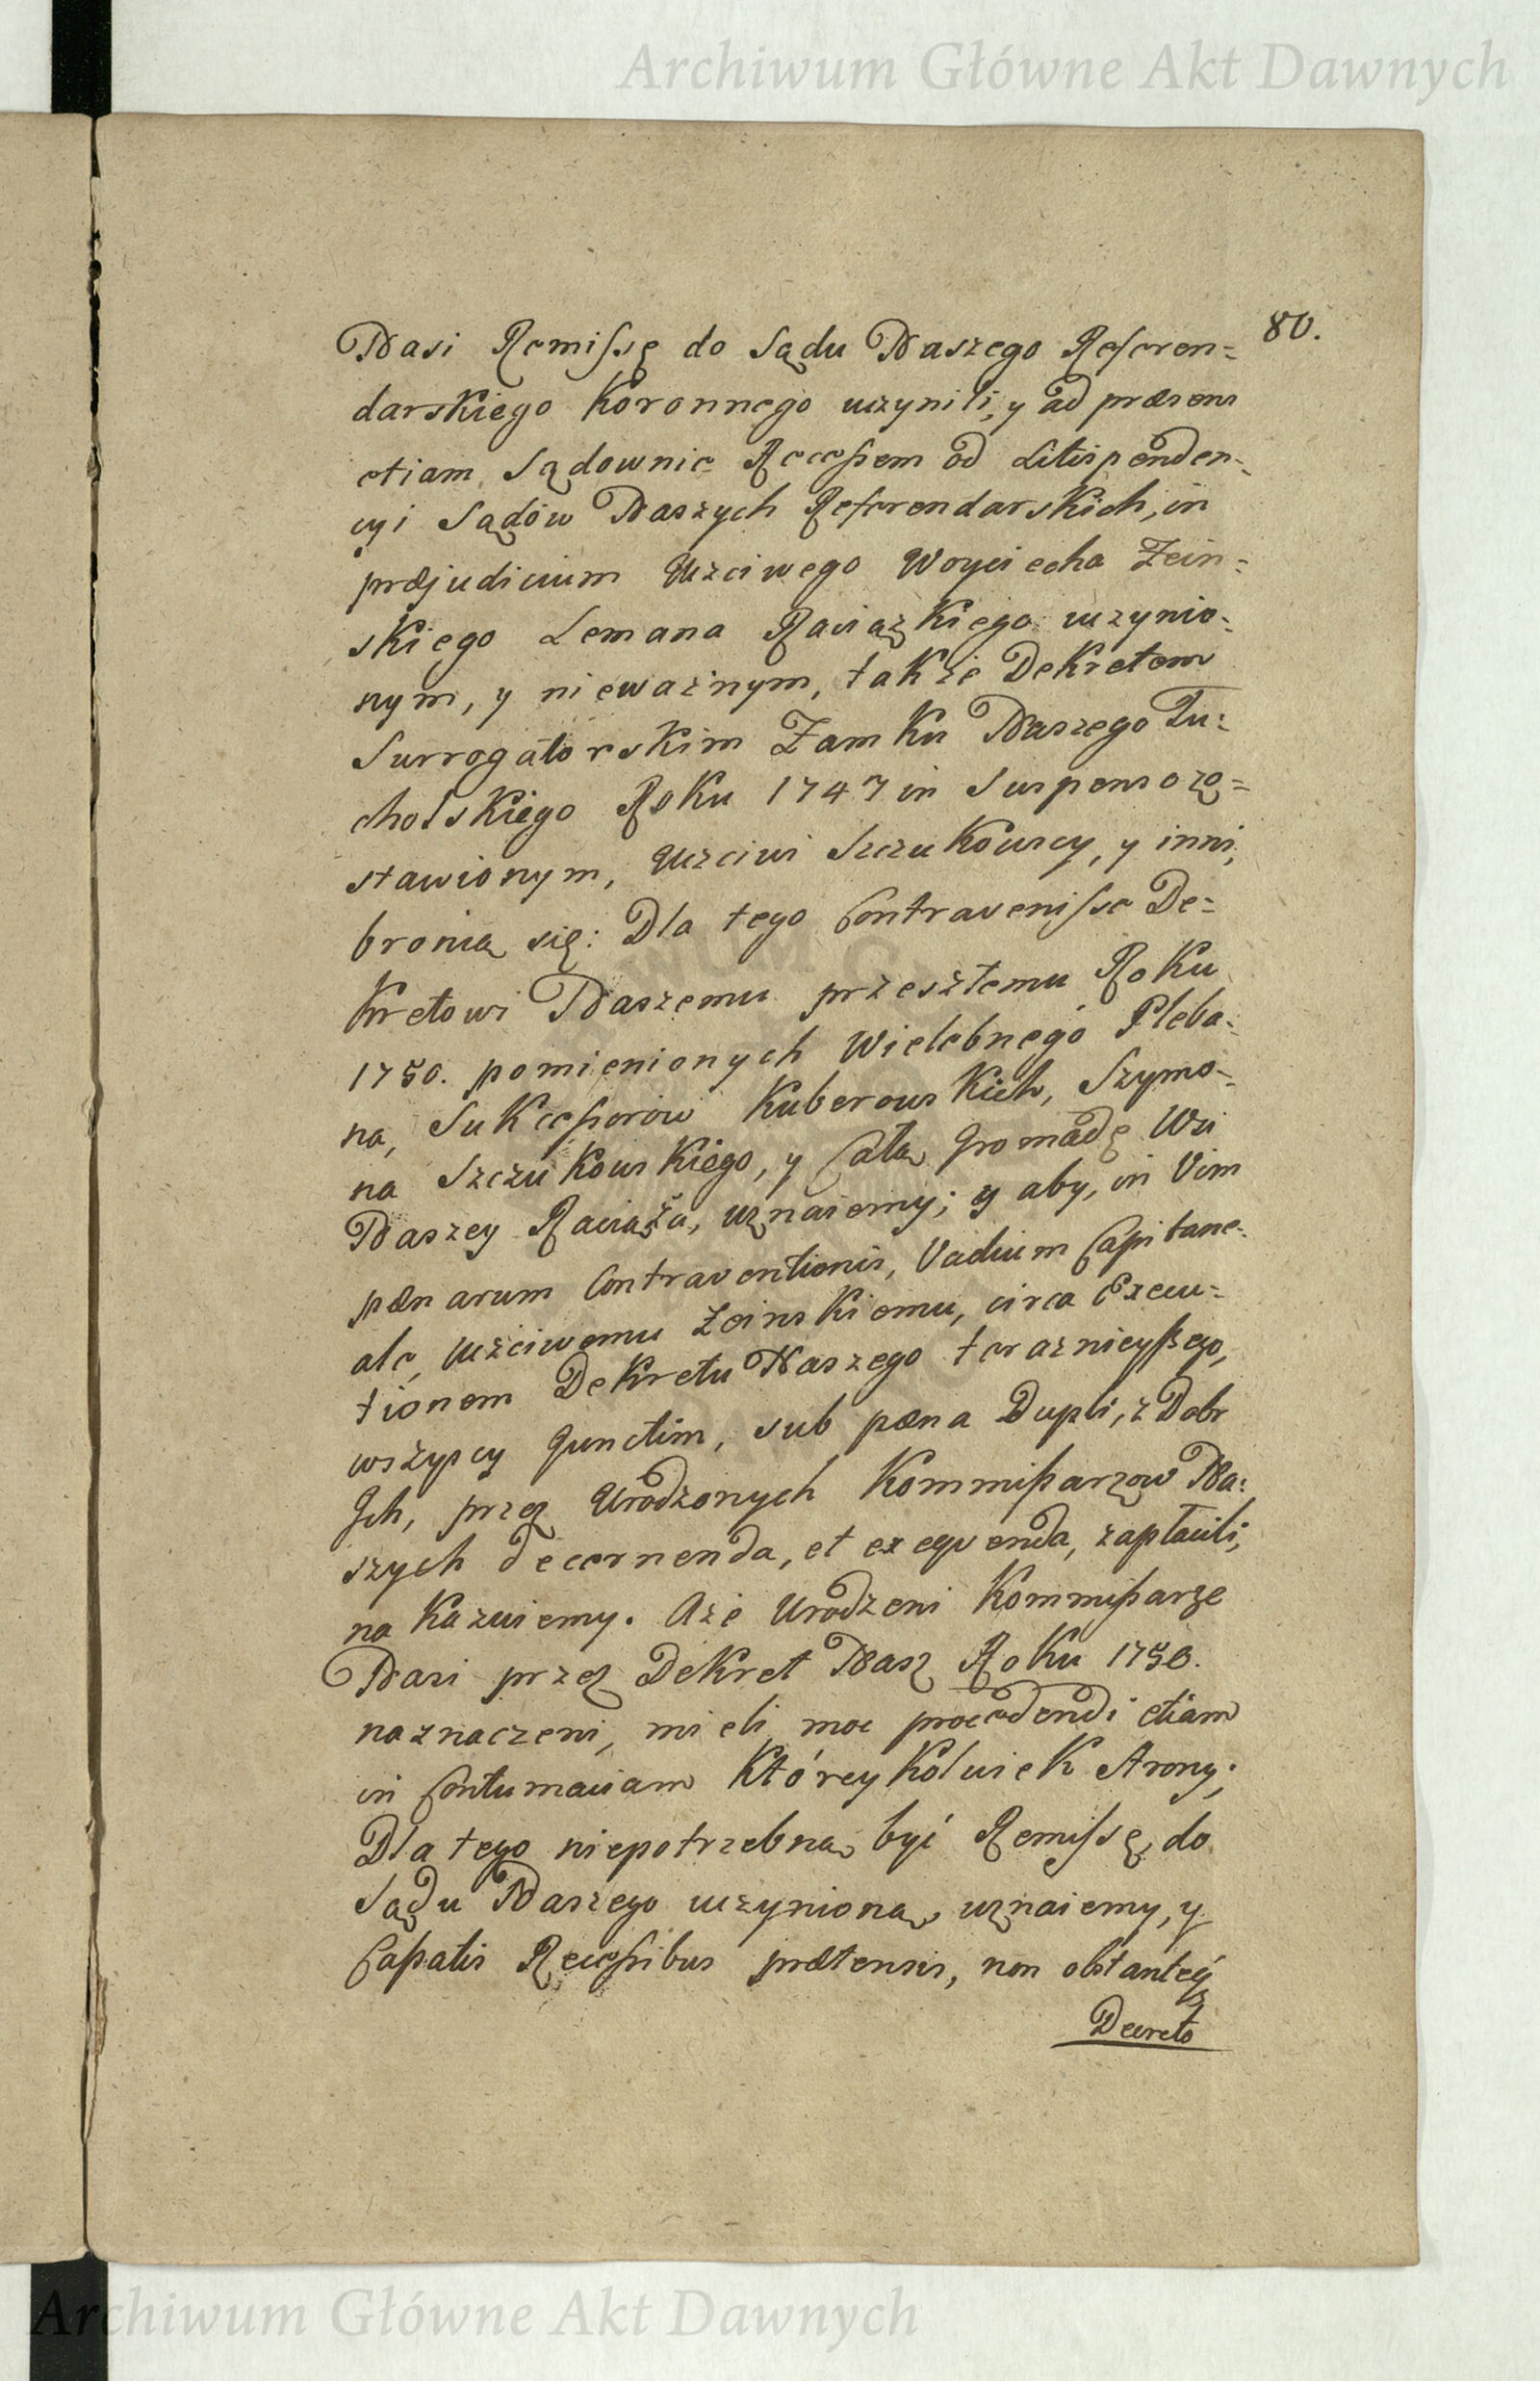 Archiwum Główne Akt Dawnych
80.
Nasi Remissę do Sądu Naszego Referen=
darskiego Koronnego uczynili, y ad præsens
etiam Sądownie Recessem od Litispenden=
cyi Sądów Naszych Referendarskich, in
præjudicium Uczciwego Woyciecha Zein=
skiego Lemana Raciązkiego uczynio=
nym, y nieważnym, także Dekretem
Surrogatorskim Zamku Naszego Tu=
cholskiego Roku 1747 in Suspenso zo=
stawionym, Uczciwi Szczukowscy, y inni,
bronią się: Dla tego Contravenisse De=
kretowi Naszemu przeszłemu Roku
1750. pomienionych Wielebnego Pleba=
na, Sukcessorów Kuberowskich, Szymo=
na Szczukowskiego, y Całą Gromadę Wsi
Naszey Raciąża, uznaiemy; y aby, in Vim
pœnarum Contraventionis, Vadium Capitane=
ale, Uczciwemu Zeinskiemu, circa Execu=
tionem Dekretu Naszego teraznieyszego,
wszyscy Junctim, sub pœna Dupli, z Dobr
Ich, przez Urodzonych Kommissarzow Na=
szych decernenda, et exequenda, zapłacili,
nakazuiemy. Aże Urodzeni Kommissarze
Nasi przez Dekret Nasz Roku 1750.
naznaczeni, mieli moc procedendi etiam
in Contumaciam któreykolwiek strony;
Dla tego niepotrzebną być Remissę, do
Sądu Naszego uczynioną, uznaiemy, y
Cassatis Recessibus prætensis, non obstanteq;
Decreto
Archiwum Główne Akt Dawnych